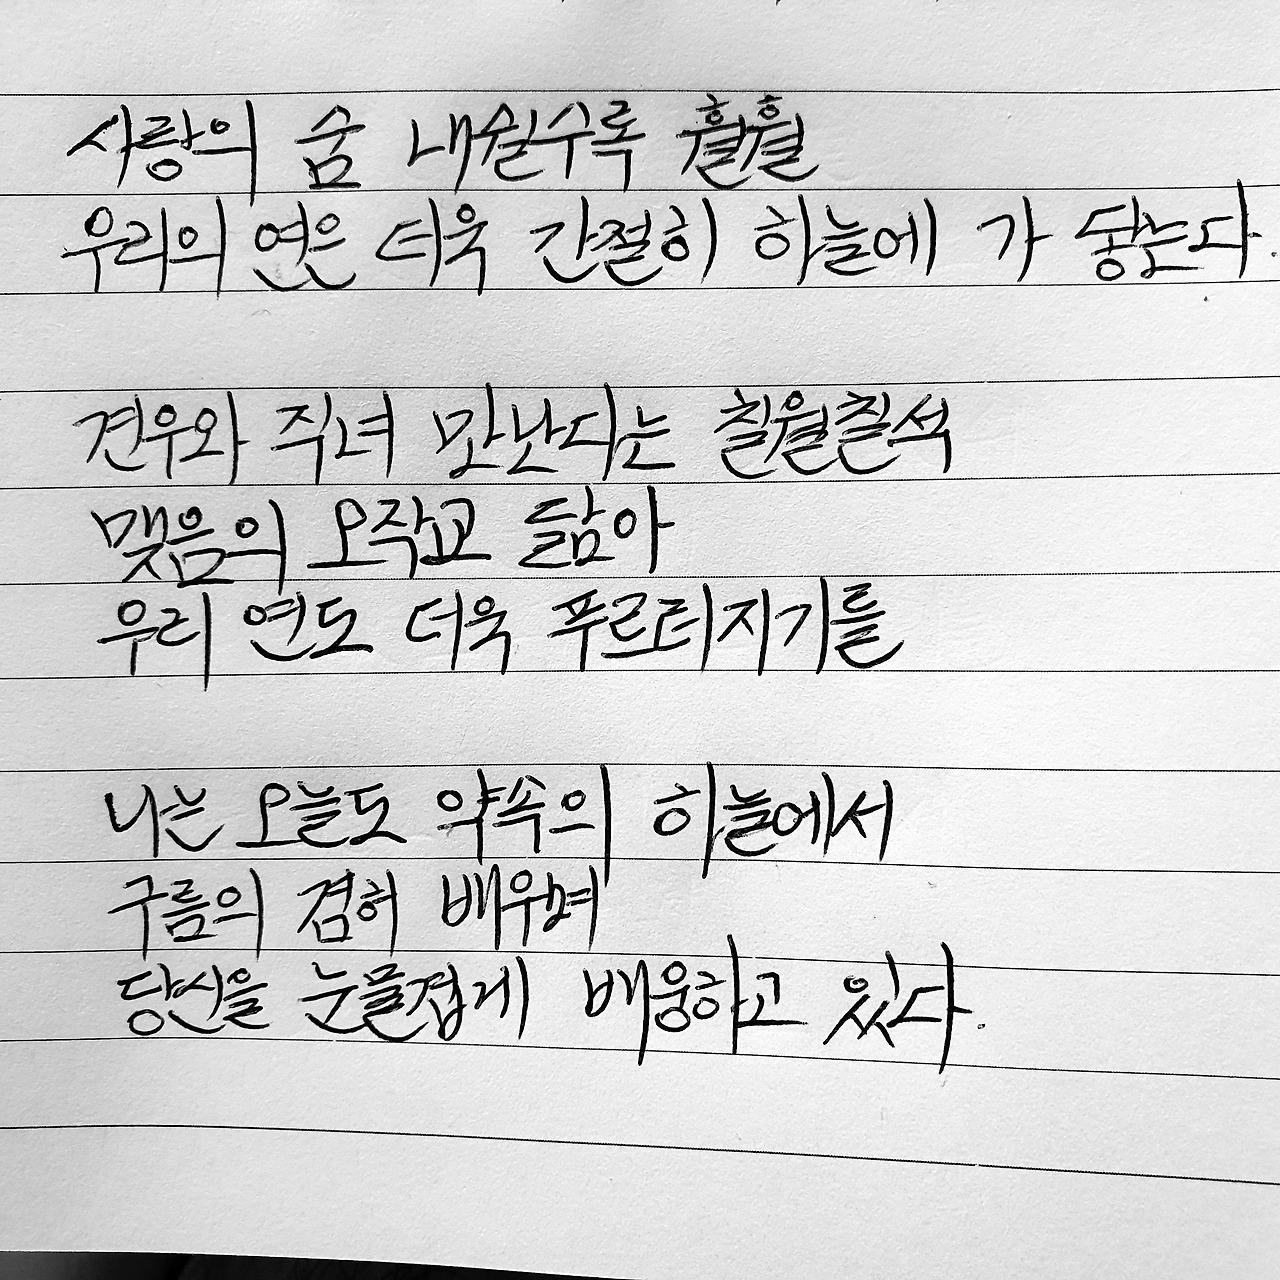 사랑의 숨 내쉴수록 훨훨
우리의 연은 더욱 간절히 하늘에 가 닿는다.
견우와 직녀 만난다는 칠월칠석
맺음의 오작교 닮아
우리 연도 더욱 푸르러지기를
나는 오늘도 약속의 하늘에서
구름의 겸허 배우며
당신을 눈물겹게 배웅하고 있다.